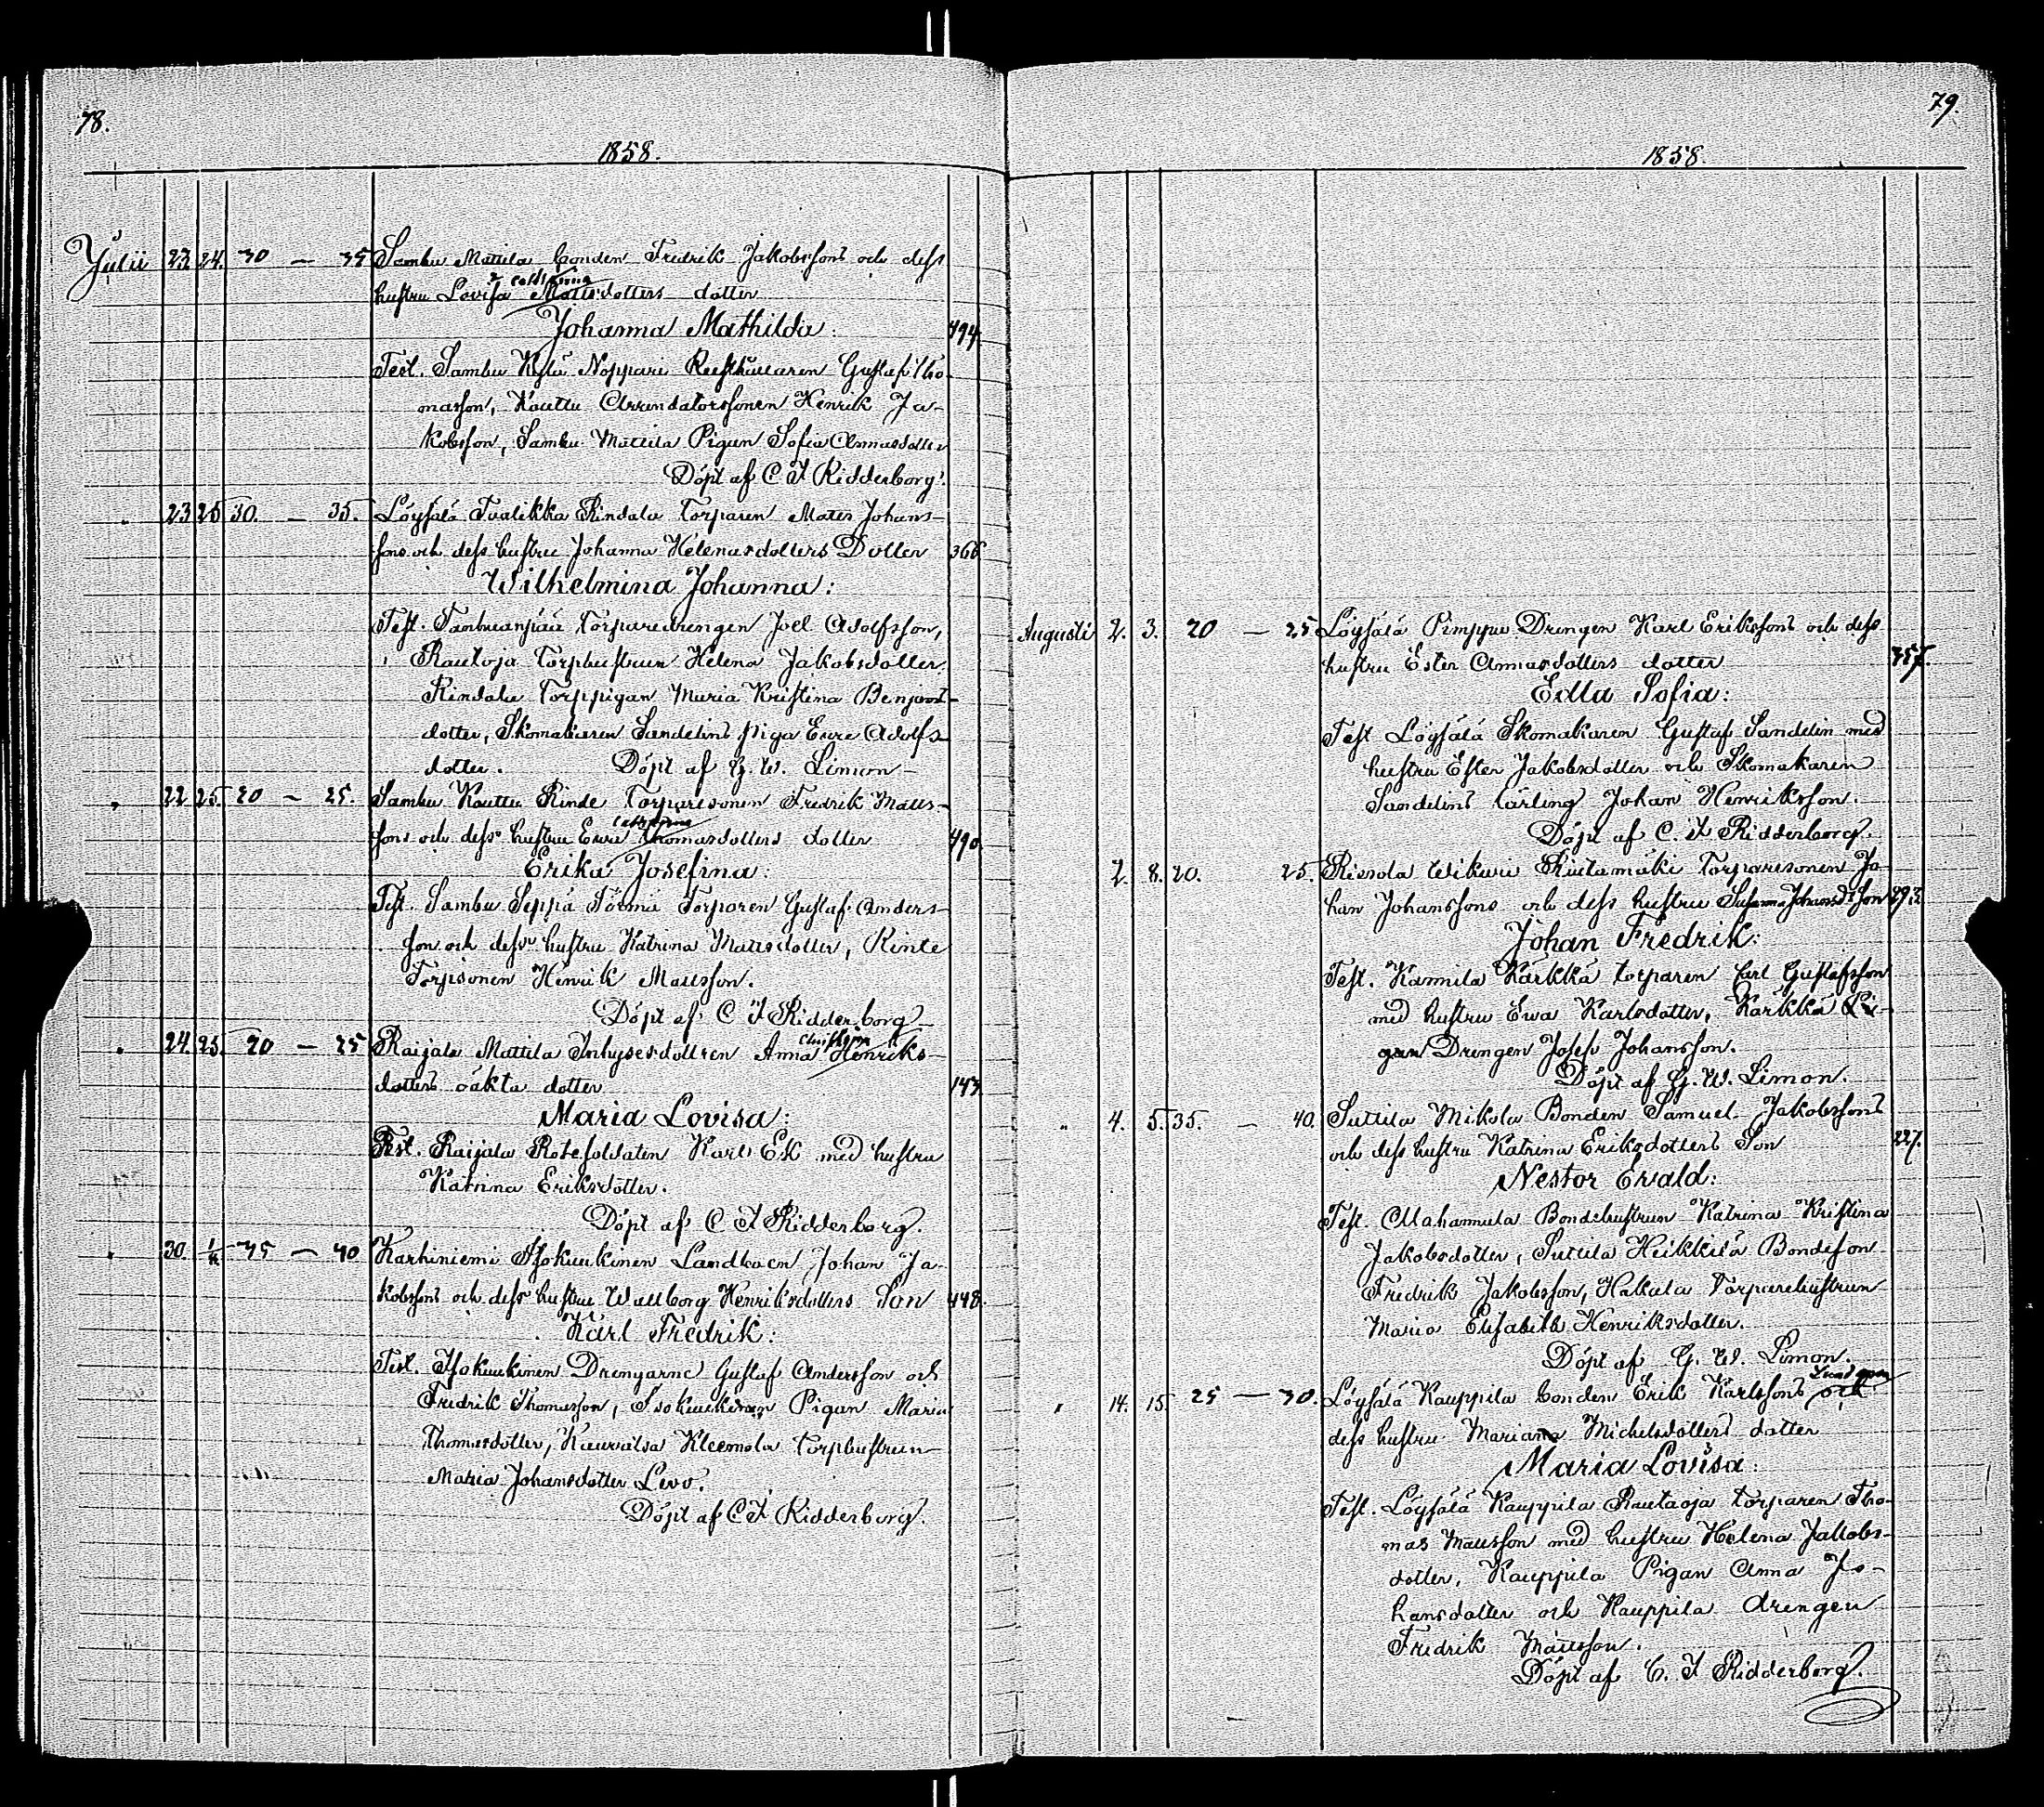 78.
1858.
Julii 23. 24. 30 — 35 Sambu Mattila bonden Fredrik Jakobssons och dess
Cathrina
hustru Lovisa Mattsdotters dotter
Johanna Mathilda: 494.
Test. Sambu Kylä Noppari Rusthållaren Gustaf Tho-
masson, Kauttu Arrendatorssonen Henrik Ja-
kobsson, Sambu Mattila Pigan Sofia Annasdotter
Döpt af C F Ridderborg.
" 23 25 30. — 35. Löysälä Tvalikka Rindala Torparen Matts Johans-
sons och dess hustru Johanna Helenasdotters Dotter 366
Wilhelmina Johanna:
Test. Torparedrengen Joel Adolfsson,
Rautoja Torphustrun Helena Jakobsdotter
Rindala Torppigan Maria Kristina Benjamins-
dotter, Skomakaren Sandelins piga Eva Adolfs
dotter. Döpt af G. W. Limon —
" 22 25. 20 — 25. Sambu Kauttu Rinde Torparesonen Fredrik Matts-
Cathrina
sons och dess hustru Eva Thomasdotters dotter 490.
Erika Josefina:
Test. Sambu Seppä Törmä Torparen Gustaf Anders-
son och dess hustru Katrina Mattsdotter, Rinte
Torpsonen Henrik Mattsson.
Döpt af C F Ridderborg
" 24 25. 20 — 25 Raijala Mattila Inhysesdottren Anna Henriks-
dotters oäkta dotter 143.
Maria Lovisa:
Test. Raijala Rotesoldaten Karl Ek med hustru
Katrina Eriksdotter.
Döpt af C F Ridderborg.
" 30. 1/8 35 — 40 Karhiniemi Isokuukinen Landboen Johan Ja-
kobssons och dess hustru Wallborg Henriksdotters Son 448.
Karl Fredrik:
Test. Isokuukinen Drengarne Gustaf Andersson och
Fredrik Thomasson, Isokuukinen Pigan Maria
Thomasdotter, Kauvatsa Kleemola Torphustrun
Maria Johansdotter Levo.
Döpt af C F Ridderborg.
79.
1858.
Augusti 2. 3. 20 — 25 Löysälä Pimppu Drengen Karl Erikssons och dess
hustru Ester Annasdotters dotter 357.
Edla Sofia:
Test Löysälä Skomakaren Gustaf Sandelin med
hustru Ester Jakobsdotter och Skomakaren
Sandelins lärling Johan Henriksson.
Döpt af C. F Ridderborg.
2. 8. 20. 25. Risola Wikari Rietamäki Torparesonen Jo
han Johanssons och dess hustru Susanna Johansd:s Son 293.
Johan Fredrik:
Test. Kamila Kärkkä torparen Carl Gustafsson
med hustru Ewa Karlsdotter, Kärkkä Pi-
gan Drengen Josef Johansson.
Döpt af G. W. Limon.
" 4. 5. 35. — 40. Suttila Mikola Bonden Samuel Jakobssons
och dess hustru Katrina Eriksdotters Son 227.
Nestor Evald:
Test. Mahamala Bondehustrun Katrina Kristina
Jakobsdotter, Suttila Heikkilä Bondeson
Fredrik Jakobsson, Hakala Torparehustrun
Maria Elisabeth Henriksdotter.
Döpt af G. W. Limon.
Lindgren
" 14. 15. 25 — 30. Löysälä Kauppila bonden Erik Karlssons och
dess hustru Maria Michelsdotters dotter
Maria Lovisa:
Test. Löysälä Kauppila Rautaoja torparen Tho-
mas Mattsson med hustru Helena Jakobs-
dotter, Kauppila Pigan Anna Jo-
hansdotter och Kauppila drengen
Fredrik Mattsson.
Döpt af C. F Ridderborg.